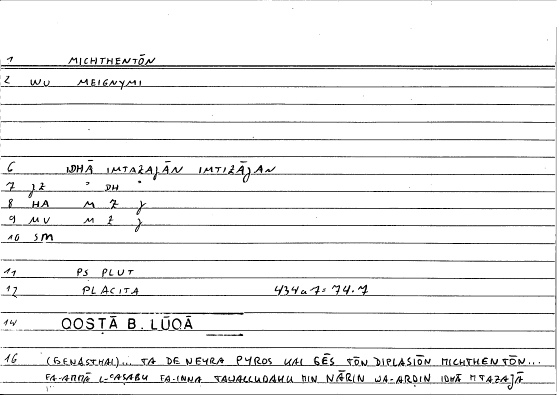 1 MICHTHENTŌN
2 WU MEIGNYMI
6 IDHĀ IMTAZAJĀN IMTIZĀJAN
7 JZ " DH "
8 HA M Z J
9 MU M Z J
10 SM
11 PS PLUT
12 PLACITA 434a7=74.7
14 QOSTĀ B. LŪQĀ
16 (GENASTHAI)... TA DE NEYRA PYROS KAI GĒS TŌN DIPLASIŌN MICHTHENTŌN...
FA-AMMĀ L-CASABU FA-INNA TAWALLUDAHU MIN NĀRIN WA-ARDIN IDHĀ MTAZAJĀ